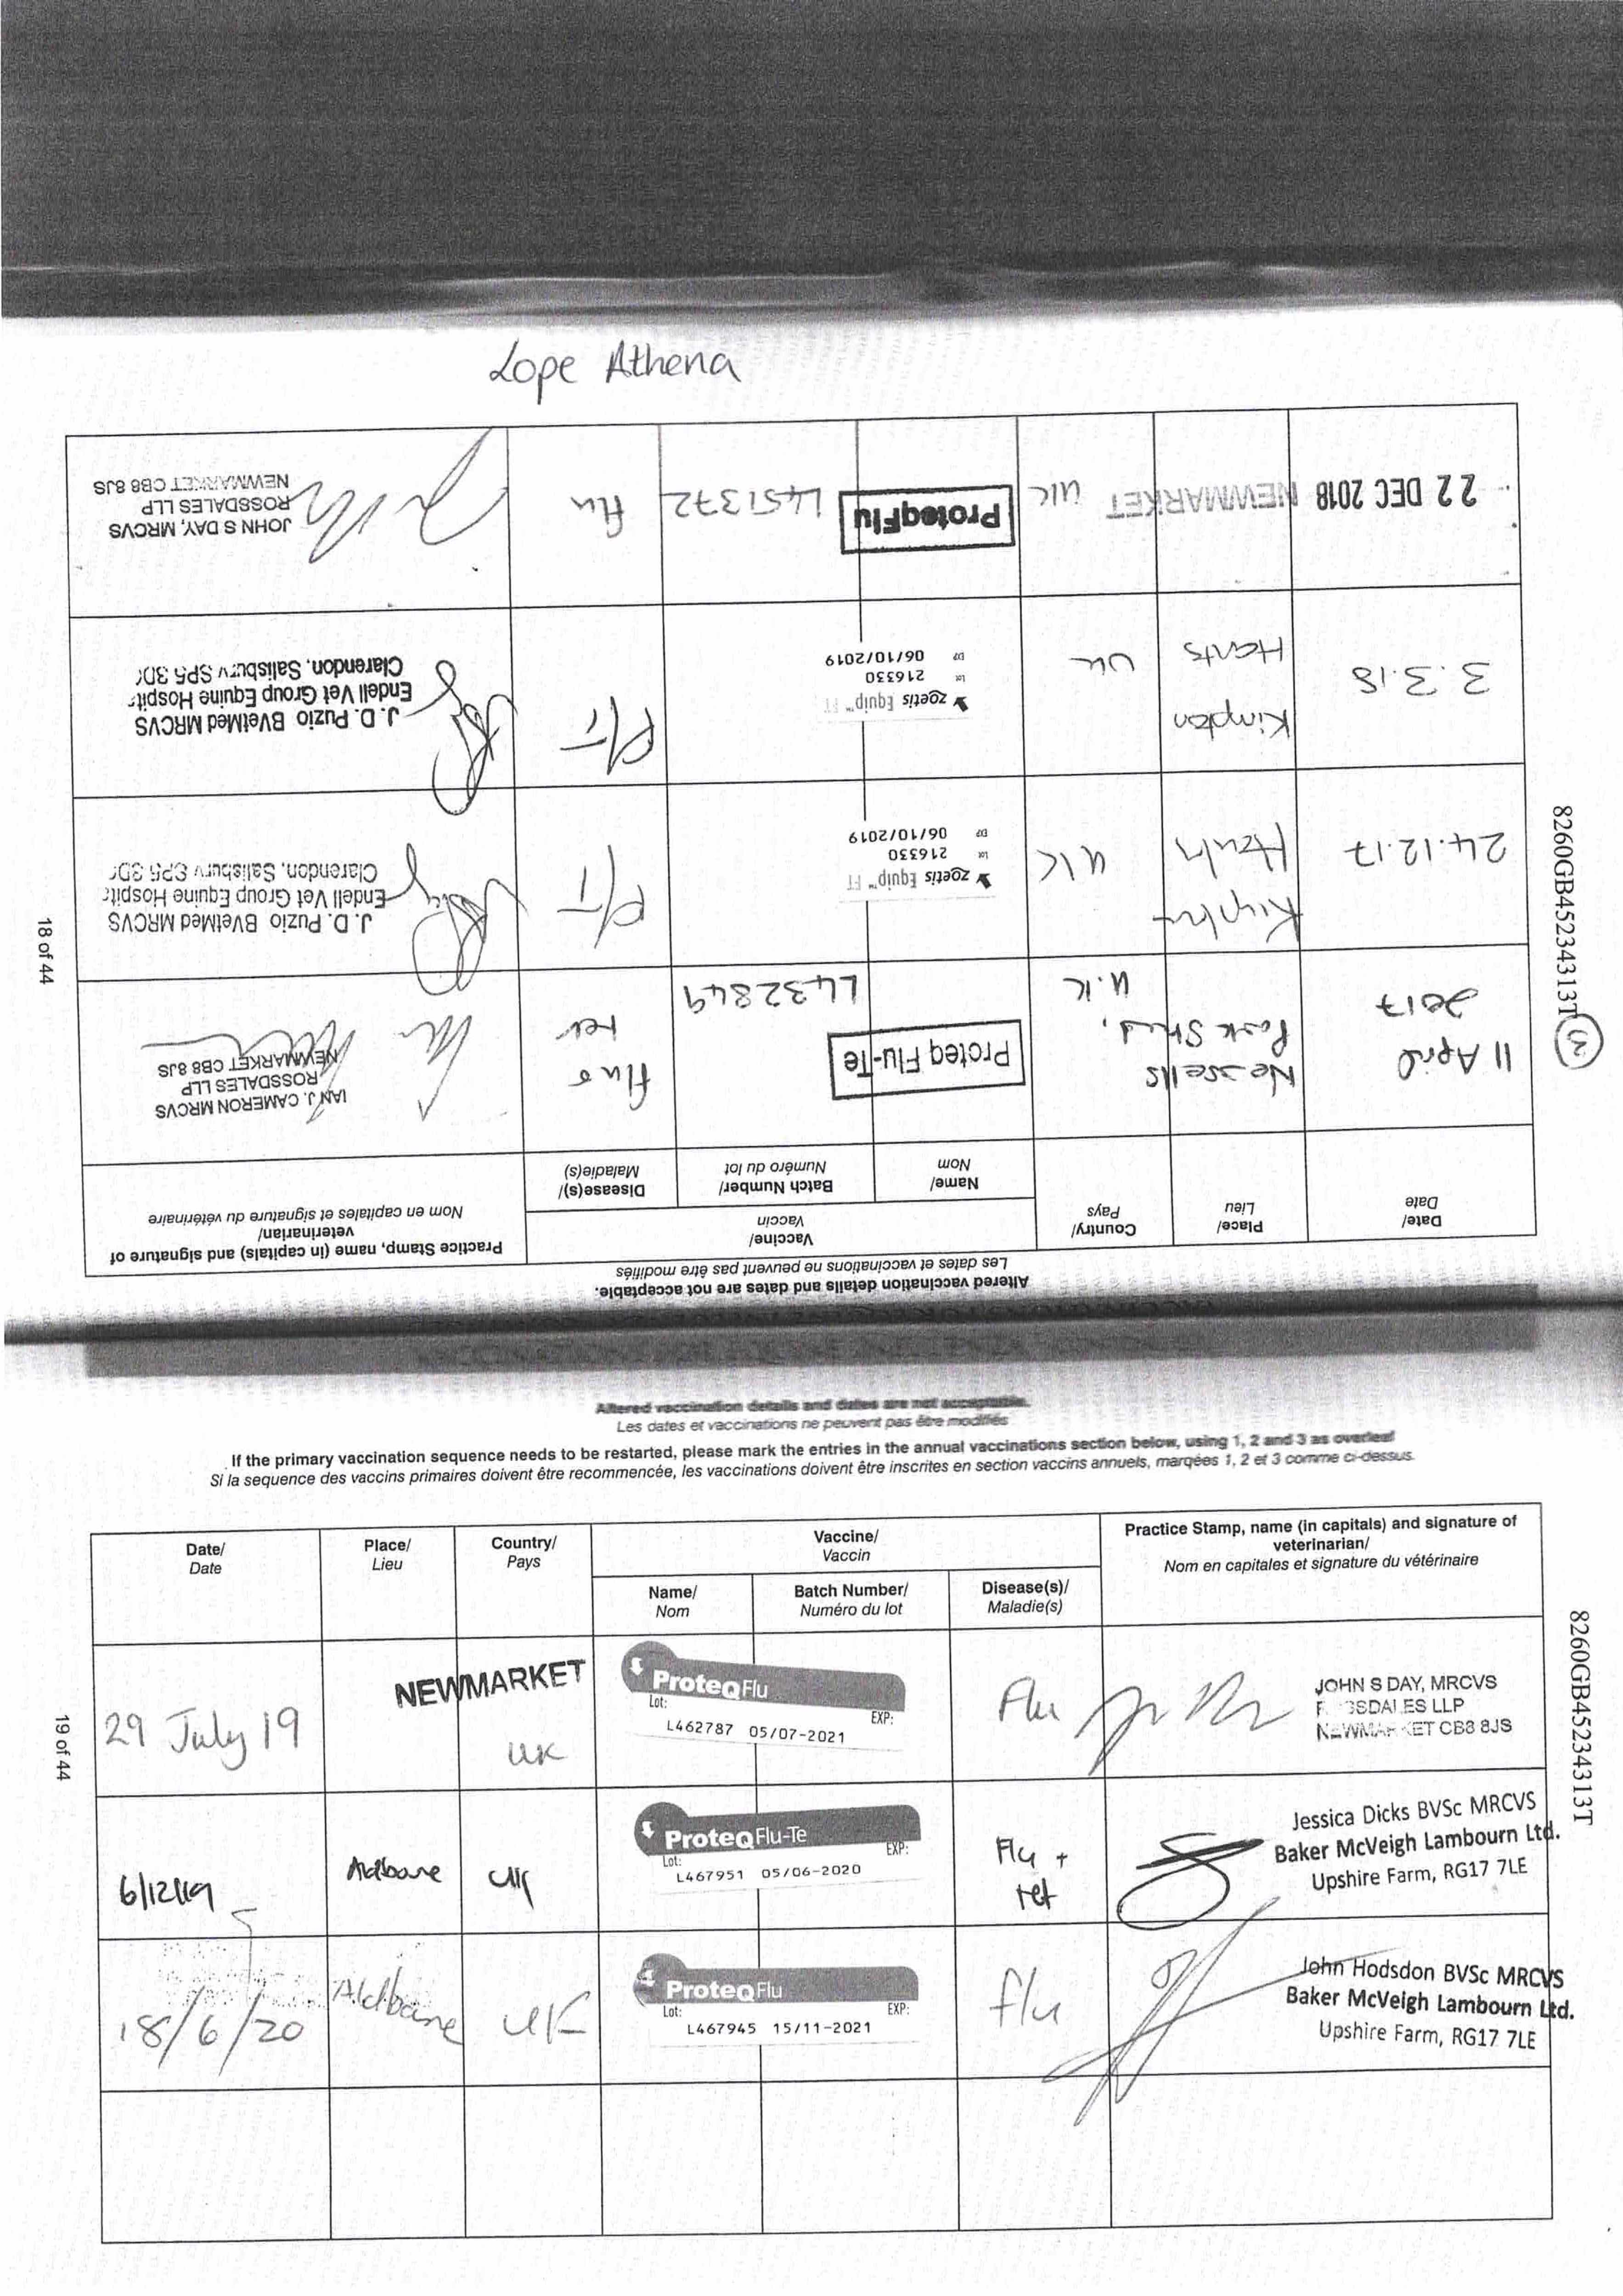 Lope Athena
18 of 44
8260GB45234313T
3
Altered vaccination details and dates are not acceptable.
Les dates et vaccinations ne peuvent pas être modifiés
Date/
Date
Place/
Lieu
Country/
Pays
Vaccine/
Vaccin
Practice Stamp, name (in capitals) and signature of
veterinarian/
Nom en capitales et signature du vétérinaire
Name/
Nom
Batch Number/
Numéro du lot
Disease(s)/
Maladie(s)
11 April
2017
Nessells
Park Stud,
U.K
Proteq Flu-Te
L432849
flu &
tet
IAN J. CAMERON MRCVS
ROSSDALES LLP
NEWMARKET CB8 8JS
24.12.17
UK
zoetis Equip™ FT
Lot 216330
EXP 06/10/2019
F/T
J. D. Puzio BVetMed MRCVS
Endell Vet Group Equine Hospit
Clarendon, Salisbury SP5 3D
3.3.18
Kimpton
Hants
UK
zoetis Equip™ FT
Lot 216330
EXP 06/10/2019
F/T
J. D. Puzio BVetMed MRCVS
Endell Vet Group Equine Hospit
Clarendon, Salisbury SP5 3D
22 DEC 2018
NEWMARKET
UK
ProteqFlu
L451372
flu
JOHN S DAY, MRCVS
ROSSDALES LLP
NEWMARKET CB8 8JS
Altered vaccination details and dates are not acceptable.
Les dates et vaccinations ne peuvent pas être modifiés
If the primary vaccination sequence needs to be restarted, please mark the entries in the annual vaccinations section below, using 1, 2 and 3 as overleaf
Si la sequence des vaccins primaires doivent être recommencée, les vaccinations doivent être inscrites en section vaccins annuels, marqées 1, 2 et 3 comme ci-dessus.
Date/
Date
Place/
Lieu
Country/
Pays
Vaccine/
Vaccin
Practice Stamp, name (in capitals) and signature of
veterinarian/
Nom en capitales et signature du vétérinaire
Name/
Nom
Batch Number/
Numéro du lot
Disease(s)/
Maladie(s)
29 July 19
NEWMARKET
UK
ProteqFlu
Lot: EXP:
L462787 05/07-2021
Flu
JOHN S DAY, MRCVS
ROSSDALES LLP
NEWMARKET CB8 8JS
6/12/19
Aldbourne
UK
ProteqFlu-Te
Lot: EXP:
L467951 05/06-2020
Flu +
tet
Jessica Dicks BVSc MRCVS
Baker McVeigh Lambourn Ltd.
Upshire Farm, RG17 7LE
18/6/20
Aldbourne
UK
ProteqFlu
Lot: EXP:
L467945 15/11-2021
flu
John Hodsdon BVSc MRCVS
Baker McVeigh Lambourn Ltd.
Upshire Farm, RG17 7LE
19 of 44
8260GB45234313T